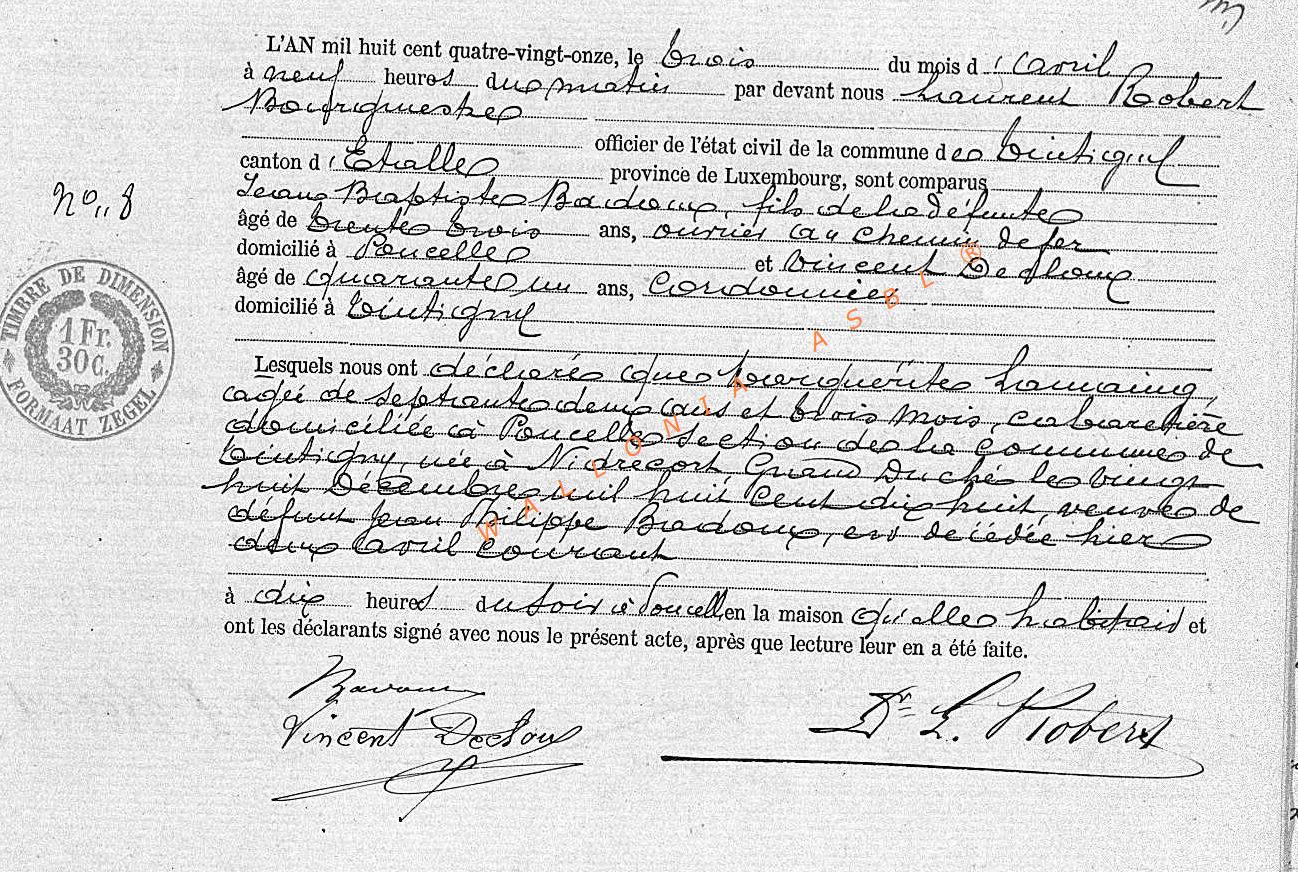 L'AN mil huit cent quatre-vingt-onze, le trois du mois d'avril
à neuf heures du matin par devant nous Laurent Robert
Bourgmestre
officier de l'état civil de la commune de Tintigny
canton d'Etalle province de Luxembourg, sont comparus
Jean Baptiste Badoux, fils de la défunte
âgé de trente trois ans, ouvrier au chemin de fer
domicilié à Poncelle et Vincent
âgé de quarante un ans, Cordonnier
domicilié à Tintigny
Lesquels nous ont déclaré que Marguerite
agée de septante deux ans et trois mois, cabaretière
domiciliée à Poncelle section de la commune de
Tintigny, née à Grand Duché le vingt
huit Décembre mil huit cent dix huit, veuve de
défunt Jean Philippe Badoux, est décédée hier
deux avril courant
à dix heures du soir à Poncelle en la maison qu'elle habitait et
ont les déclarants signé avec nous le présent acte, après que lecture leur en a été faite.
No 8
TIMBRE DE DIMENSION
1 Fr.
30 C.
FORMAAT ZEGEL
WALLONIA ASBL ®
Vincent
Dr L. Robert